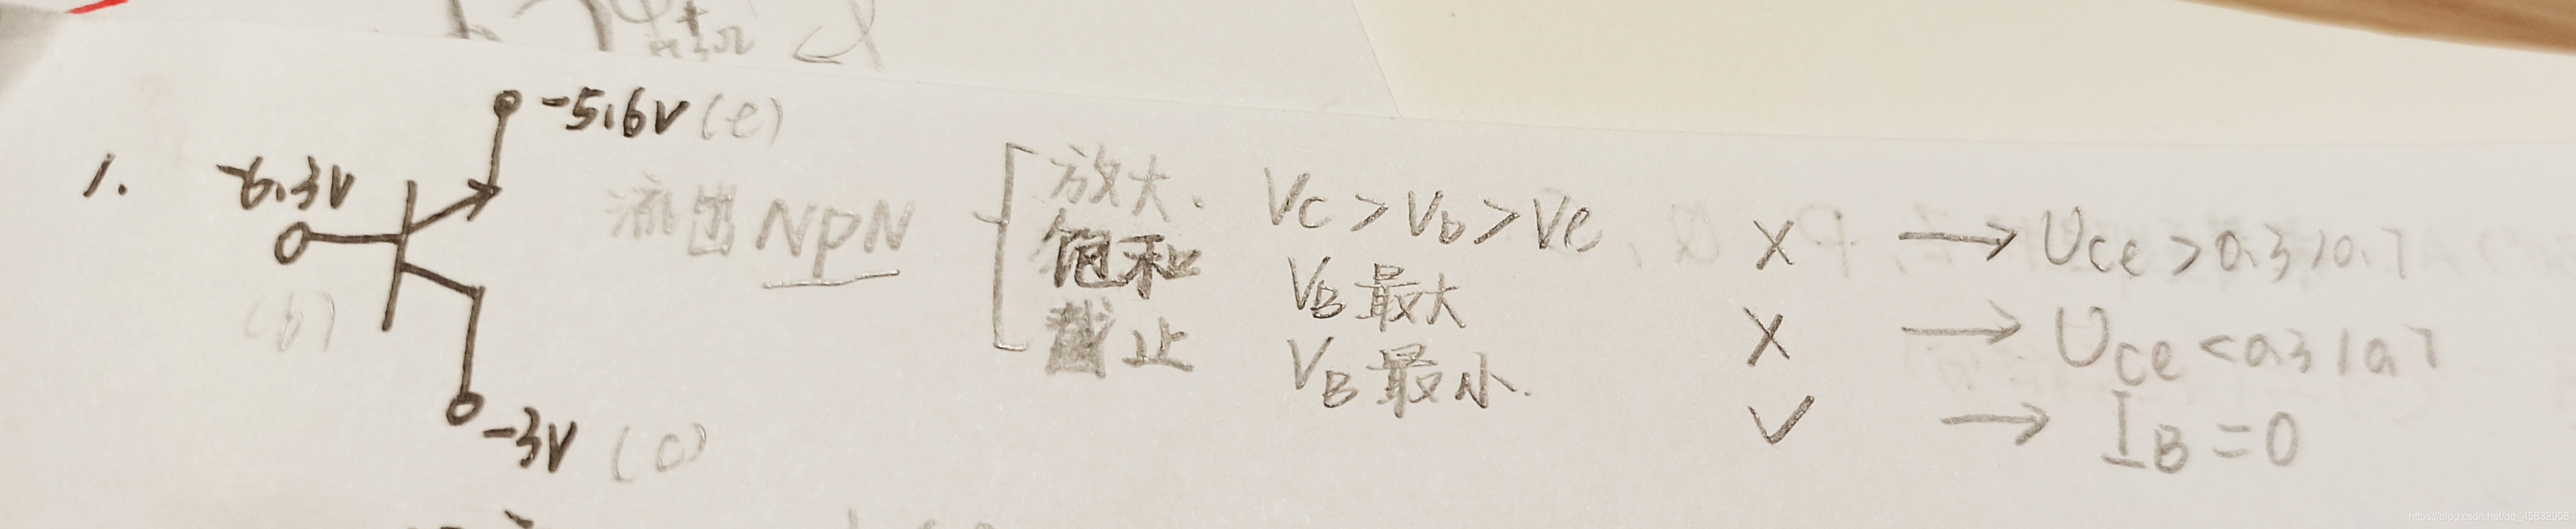 -5.6V (e)
1. -6.3V
流出 NPN
(b)
-3V (c)
放大. Vc > Vb > Ve × → Uce > 0.3/0.7
饱和 VB 最大 × → Uce < 0.3/0.7
截止 VB 最小. ✓ → IB = 0
https://blog.csdn.net/qq_45832958